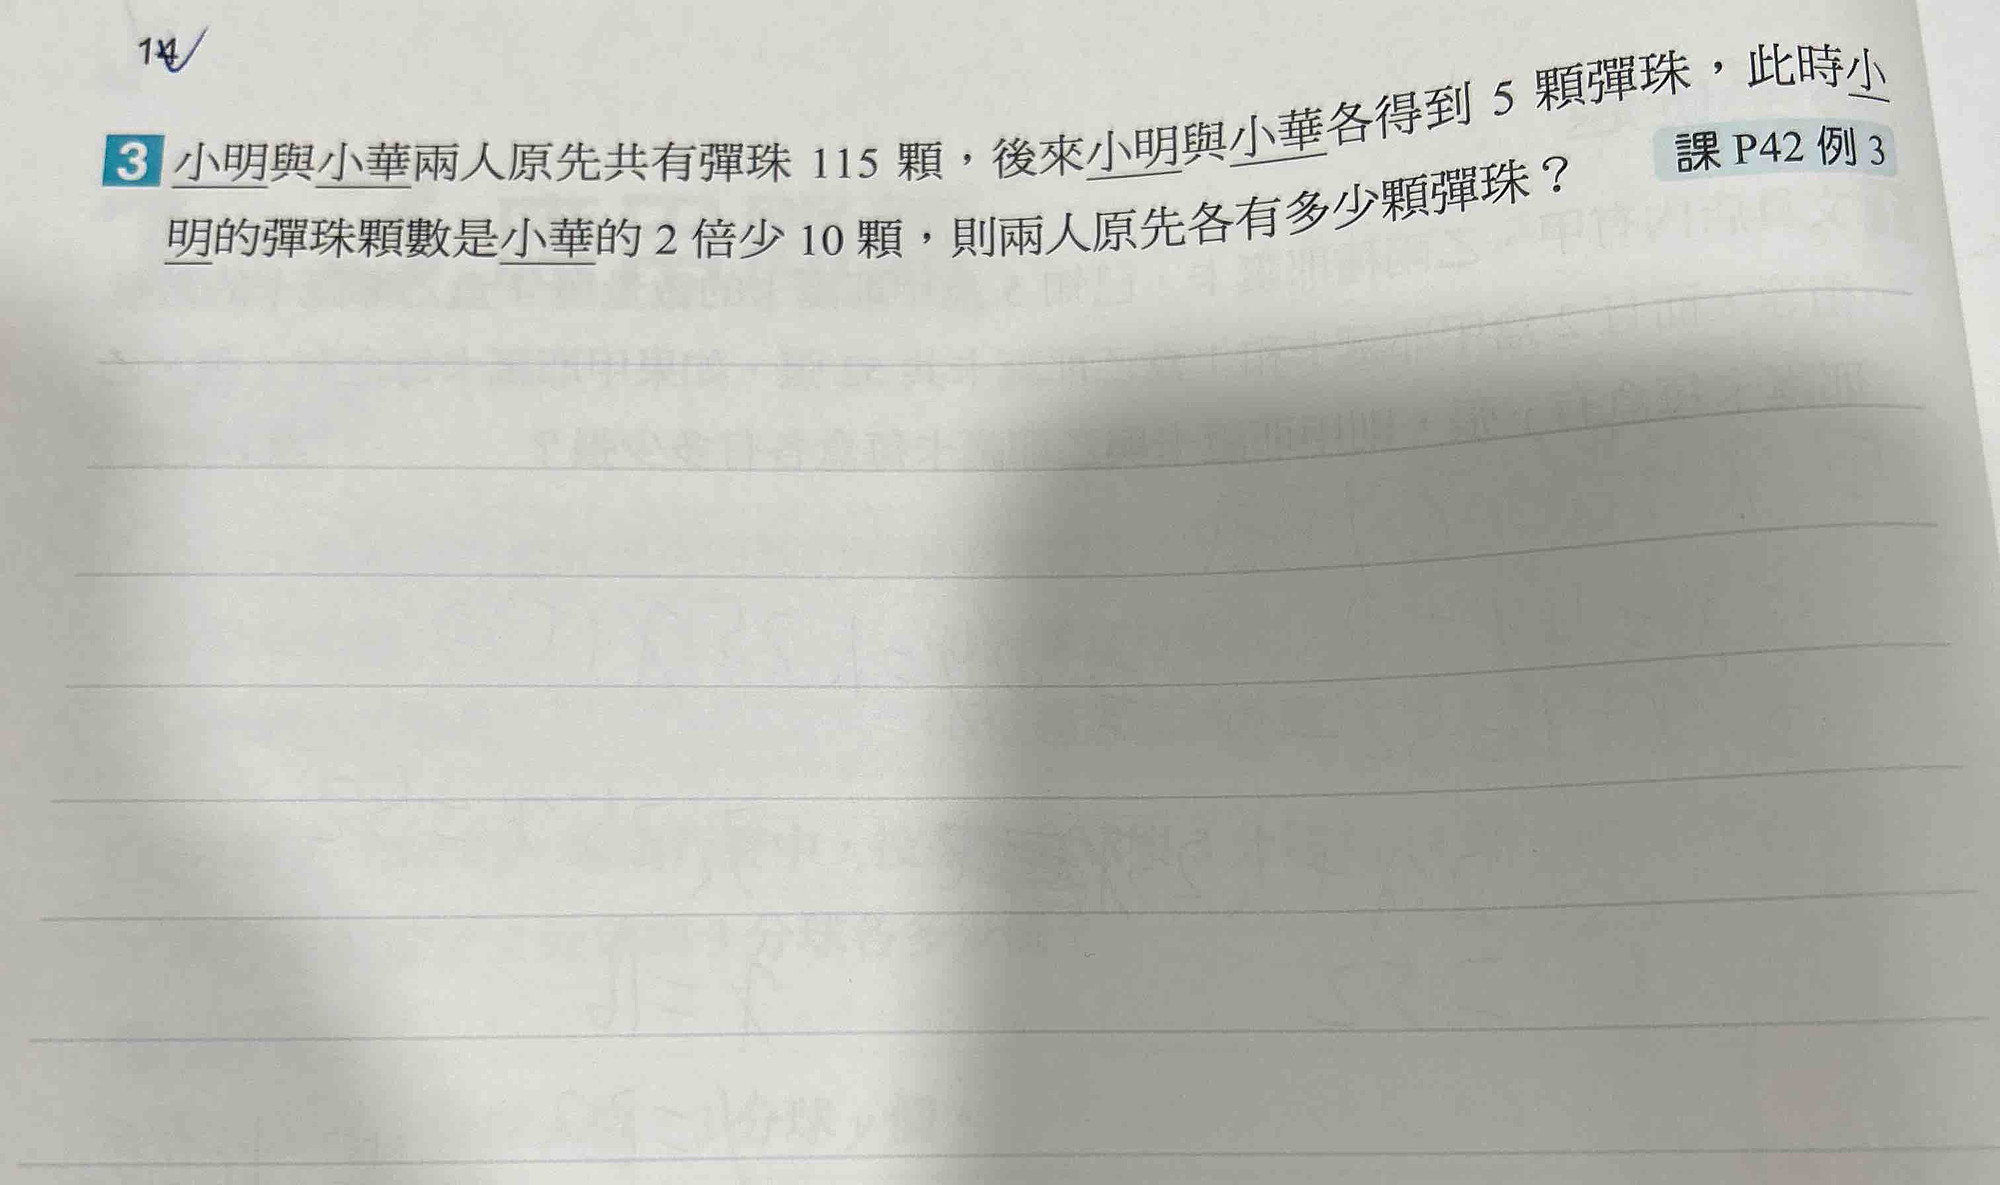 14
3 小明與小華兩人原先共有彈珠 115 顆，後來小明與小華各得到 5 顆彈珠，此時小
明的彈珠顆數是小華的 2 倍少 10 顆，則兩人原先各有多少顆彈珠？
課 P42 例 3